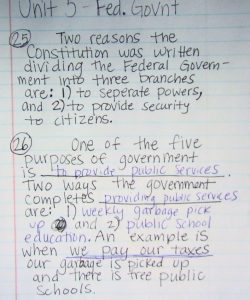 Unit 5 - Fed. Govnt
25) Two reasons the
Constitution was written
dividing the Federal Govern-
ment into three branches
are: 1) to seperate powers,
and 2) to provide security
to citizens.
26) One of the five
purposes of government
is to provide public services.
Two ways the government
completes providing public services
are: 1) weekly garbage pick
up and 2) public school
education. An example is
when we pay our taxes
our garbage is picked up
and there is free public
schools.